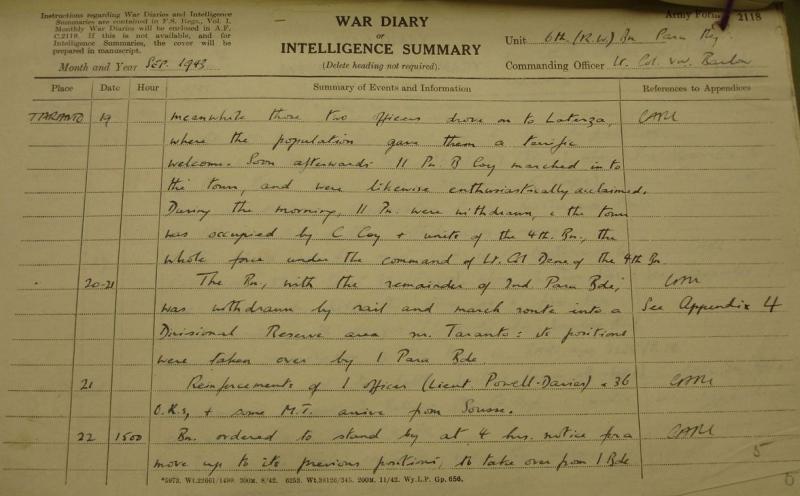 Instructions regarding War Diaries and Intelligence
Summaries are contained in F.S. Regs., Vol. I.
Monthly War Diaries will be enclosed in A.F.
C.2118. If this is not available, and for
Intelligence Summaries, the cover will be
prepared in manuscript.
Month and Year Sep. 1943
WAR DIARY
or
INTELLIGENCE SUMMARY
(Delete heading not required).
Army Form 2118
Unit 6th (R.W) Bn Para
Commanding Officer Lt. Col. V.W. Barlow
Place Date Hour Summary of Events and Information References to Appendices
TARANTO 19 meanwhile those two officers drove on to Laterza,
where the population gave them a terrific
welcome. Soon afterwards 11 Pn. B Coy marched into
the town, and were likewise enthusiastically acclaimed.
During the morning, 11 Pn. were withdrawn, & the town
was occupied by C Coy + units of the 4th. Bn., the
whole force under the command of Lt. Col Dene of the 4th Bn.
20-21 The Bn, with the remainder of 2nd Para Bde,
was withdrawn by rail and march route into a See Appendix 4
Divisional Reserve area nr. Taranto: its positions
were taken over by 1 Para Bde
21 Reinforcements of 1 officer (Lieut Powell-Davies) & 36
O.R.s, + some M.T. arrive from Sousse.
22 1500 Bn. ordered to stand by at 4 hrs. notice for a
move up to its previous positions, to take over from 1 Bde
5
*5973. Wt.22661/1499. 300M. 8/42. 6253. Wt.38126/345. 200M. 11/42. Wy.L.P. Gp. 656.